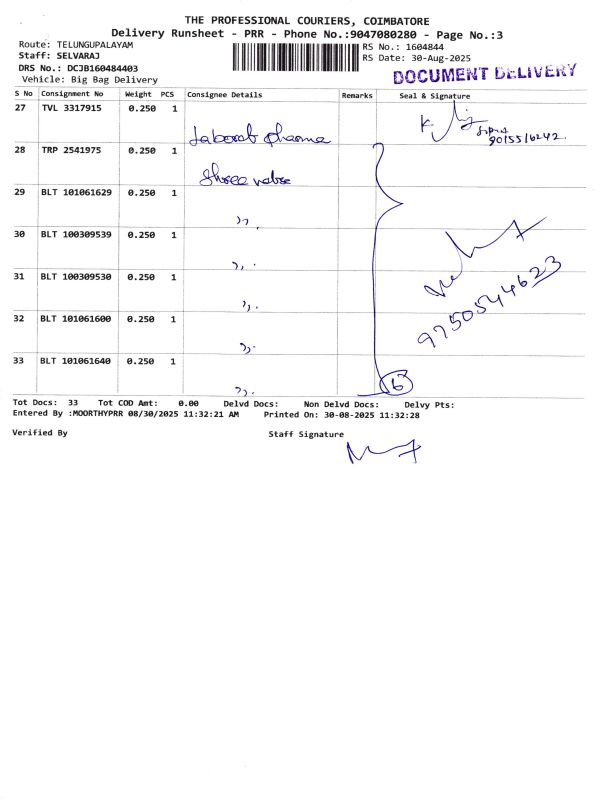 THE PROFESSIONAL COURIERS, COIMBATORE
Delivery Runsheet - PRR - Phone No.:9047080280 - Page No.:3
Route: TELUNGUPALAYAM
Staff: SELVARAJ
DRS No.: DCJB160484403
Vehicle: Big Bag Delivery
RS No.: 1604844
RS Date: 30-Aug-2025
DOCUMENT DELIVERY
S No Consignment No Weight PCS Consignee Details Remarks Seal & Signature
27 TVL 3317915 0.250 1
Pharma
9015516242.
28 TRP 2541975 0.250 1
Shree
29 BLT 101061629 0.250 1
,, .
30 BLT 100309539 0.250 1
,, .
31 BLT 100309530 0.250 1
,, .
32 BLT 101061600 0.250 1
,, .
33 BLT 101061640 0.250 1
,, .
9750544623
6
Tot Docs: 33 Tot COD Amt: 0.00 Delvd Docs: Non Delvd Docs: Delvy Pts:
Entered By :MOORTHYPRR 08/30/2025 11:32:21 AM Printed On: 30-08-2025 11:32:28
Verified By Staff Signature